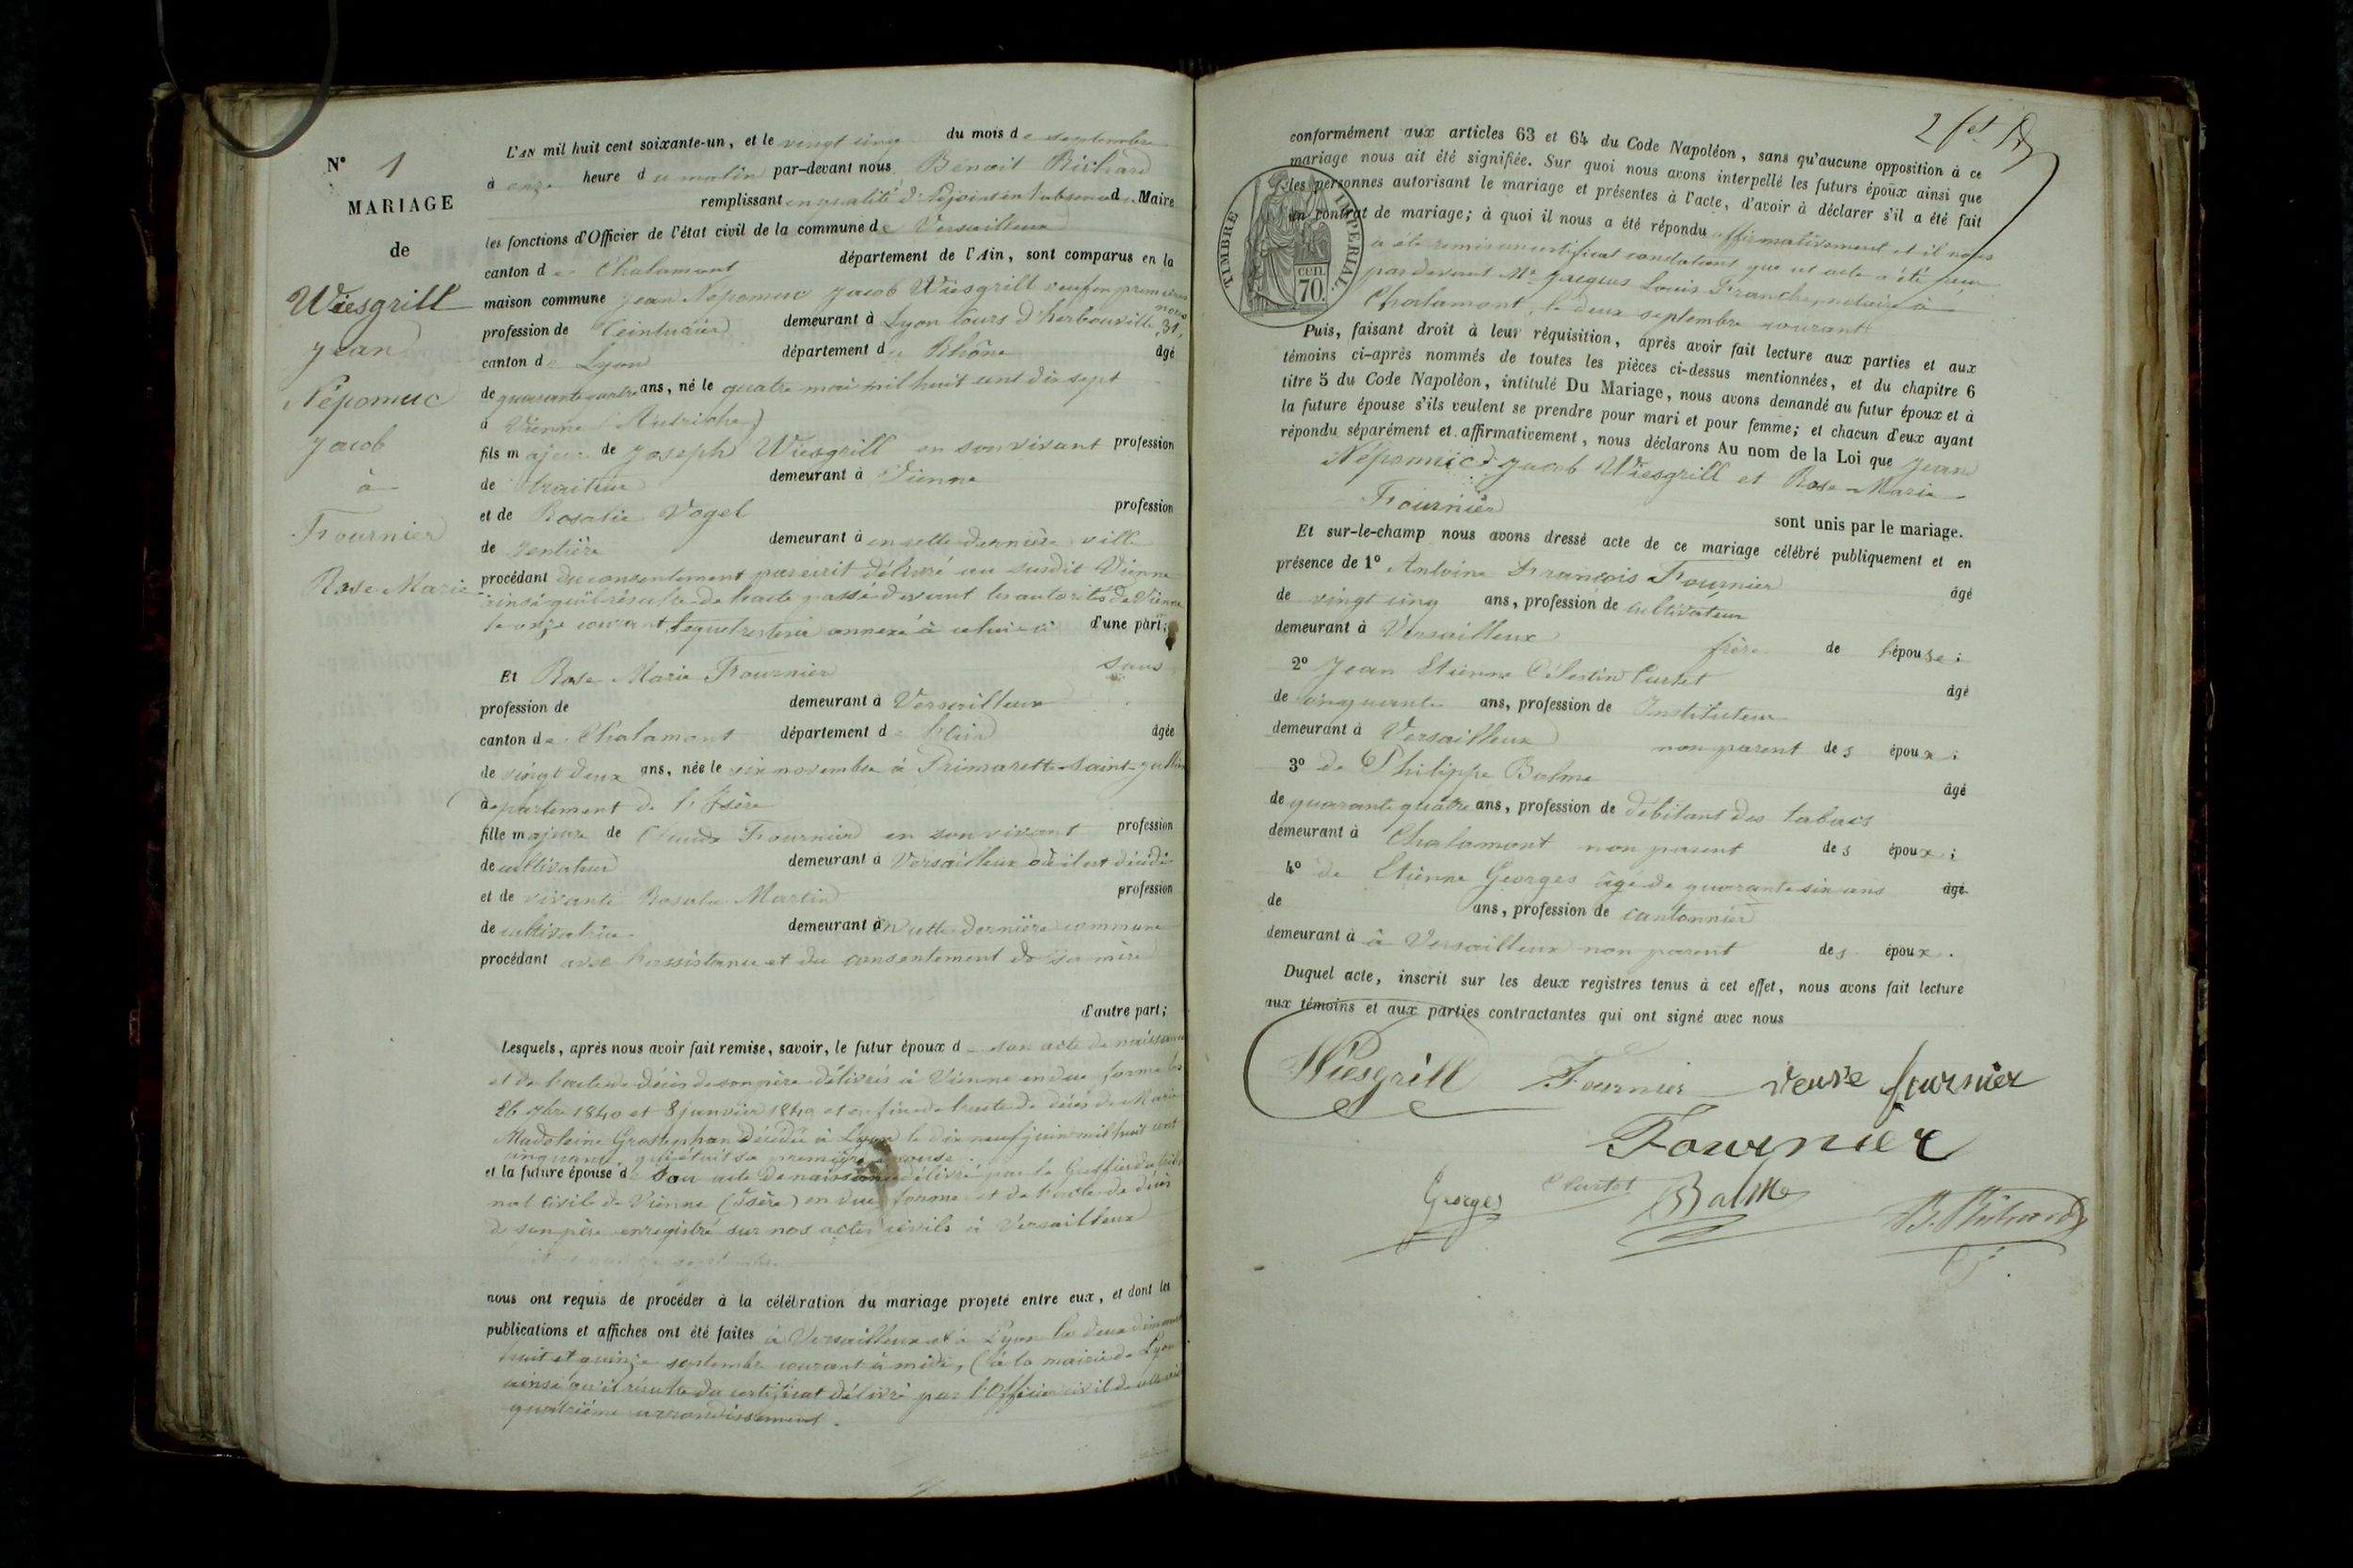 N° 1
MARIAGE
de
Wiesgrill
Jean
Népomuc
Jacob
à
Fournier
Rose Marie
L'AN mil huit cent soixante-un, et le vingt cinq du mois de septembre
à onze heure du matin par-devant nous Benoit Richard
remplissant en qualité d'Adjoint en l'absence du Maire
les fonctions d'Officier de l'état civil de la commune de Versailleux
canton de Chalamont département de l'Ain, sont comparus en la
maison commune Jean Népomuc Jacob Wiesgrill veuf en premières
noces
profession de Teinturier demeurant à Lyon Cours d'herbouville, 31,
canton de Lyon département du Rhône âgé
de quarante quatre ans, né le quatre mai mil huit cent dix sept
à Vienne (Autriche)
fils majeur de Joseph Wiesgrill en son vivant profession
de traiteur demeurant à Vienne
et de Rosalie Vogel profession
de rentière demeurant à en cette dernière ville
procédant du consentement par écrit délivré au susdit Vienne
ainsi qu'il résulte de l'acte passé devant les autorités de Vienne
le onze courant lequel restera annexé à celui-ci d'une part;
Et Rose Marie Fournier sans
profession de demeurant à Versailleux
canton de Chalamont département de l'Ain âgée
de vingt deux ans, née le six novembre à Primarette-Saint-Jullin
département de l'Isère
fille majeure de Claude Fournier en son vivant profession
de cultivateur demeurant à Versailleux où il est décédé
et de vivante Rosalie Martin profession
de cultivatrice demeurant à en cette dernière commune
procédant avec l'assistance et du consentement de sa mère
d'autre part;
Lesquels, après nous avoir fait remise, savoir, le futur époux d son acte de naissance
et de l'acte de décès de son père délivrés à Vienne en due forme les
26 7bre 1840 et 8 janvier 1849 et enfin de l'acte de décès de Marie
Madeleine Grosstephan décédée à Lyon le dix neuf juin mil huit cent
cinquante qui était sa première épouse
et la future épouse de son acte de naissance délivré par le Greffier du tribu
nal civil de Vienne (Isère) en due forme et de l'acte de décès
de son père enregistré sur nos actes civils à Versailleux
septembre
nous ont requis de procéder à la célébration du mariage projeté entre eux, et dont les
publications et affiches ont été faites à Versailleux et à Lyon les deux dimanches
huit et quinze septembre courant à midi, (à la mairie de Lyon
ainsi qu'il résulte du certificat délivré par l'Officier civil de
quatrième arrondissement.
conformément aux articles 63 et 64 du Code Napoléon, sans qu'aucune opposition à ce
mariage nous ait été signifiée. Sur quoi nous avons interpellé les futurs époux ainsi que
les personnes autorisant le mariage et présentes à l'acte, d'avoir à déclarer s'il a été fait
un contrat de mariage; à quoi il nous a été répondu affirmativement et il nous
a été remis un certificat constatant que cet acte a été
par devant Me Jacques Louis Franche, notaire à
Chalamont, le deux septembre courant
TIMBRE IMPERIAL
cen.
70.
Puis, faisant droit à leur réquisition, après avoir fait lecture aux parties et aux
témoins ci-après nommés de toutes les pièces ci-dessus mentionnées, et du chapitre 6
titre 5 du Code Napoléon, intitulé Du Mariage, nous avons demandé au futur époux et à
la future épouse s'ils veulent se prendre pour mari et pour femme; et chacun d'eux ayant
répondu séparément et affirmativement, nous déclarons Au nom de la Loi que Jean
Népomuc Jacob Wiesgrill et Rose Marie
Fournier sont unis par le mariage.
Et sur-le-champ nous avons dressé acte de ce mariage célébré publiquement et en
présence de 1° Antoine François Fournier âgé
de vingt cinq ans, profession de cultivateur
demeurant à Versailleux frère de l'épouse;
2° Jean Etienne Célestin Curtet âgé
de cinquante ans, profession de Instituteur
demeurant à Versailleux non parent des époux;
3° de Philippe Balme âgé
de quarante quatre ans, profession de débitant des tabacs
demeurant à Chalamont non parent des époux;
4° de Etienne Georges âgé de quarante six ans âgé
de ans, profession de cantonnier
demeurant à à Versailleux non parent des époux.
Duquel acte, inscrit sur les deux registres tenus à cet effet, nous avons fait lecture
aux témoins et aux parties contractantes qui ont signé avec nous
Wiesgrill Fournier veuve fournier
Fournier
Georges Curtet Balme B. Richard